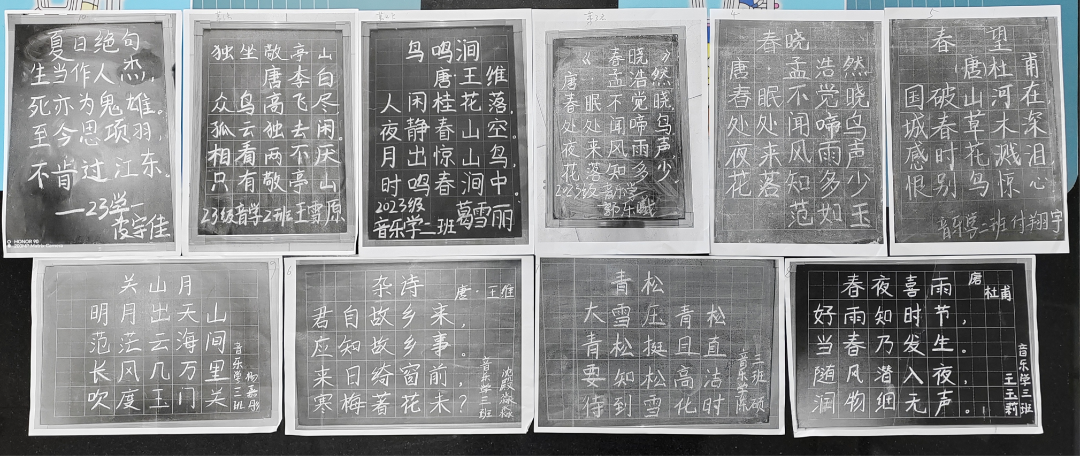 夏日绝句
生当作人杰,
死亦为鬼雄。
至今思项羽,
不肯过江东。
—23学一
独坐敬亭山
唐李白
众鸟高飞尽
孤云独去闲。
相看两不厌
只有敬亭山
23级音学2班王雪原
鸟鸣涧
唐王维
人闲桂花落。
夜静春山空。
月出惊山鸟,
时鸣春涧中。
2023级
音乐学二班葛雪丽
《春晓》
唐孟浩然
春眠不觉晓,
处处闻啼鸟。
夜来风雨声,
花落知多少
2023级音乐学
4
春晓
唐孟浩然
春眠不觉晓
处处闻啼鸟
夜来风雨声
花落知多少
范如玉
5
春望
唐杜甫
国破山河在
城春草木深
感时花溅泪,
恨别鸟惊心
音乐学二班付翔宇
关山月
明月出天山
茫茫云海间
长风几万里
吹度玉门关
音乐学二班
6
杂诗
唐·王维
君自故乡来,
应知故乡事。
来日绮窗前,
寒梅著花未?
音乐学三班
青松
大雪压青松
青松挺且直
要知松高洁
待到雪化时
三班
春夜喜雨
唐杜甫
好雨知时节,
当春乃发生。
随风潜入夜,
润物细无声。
音乐学三班
王玉莉